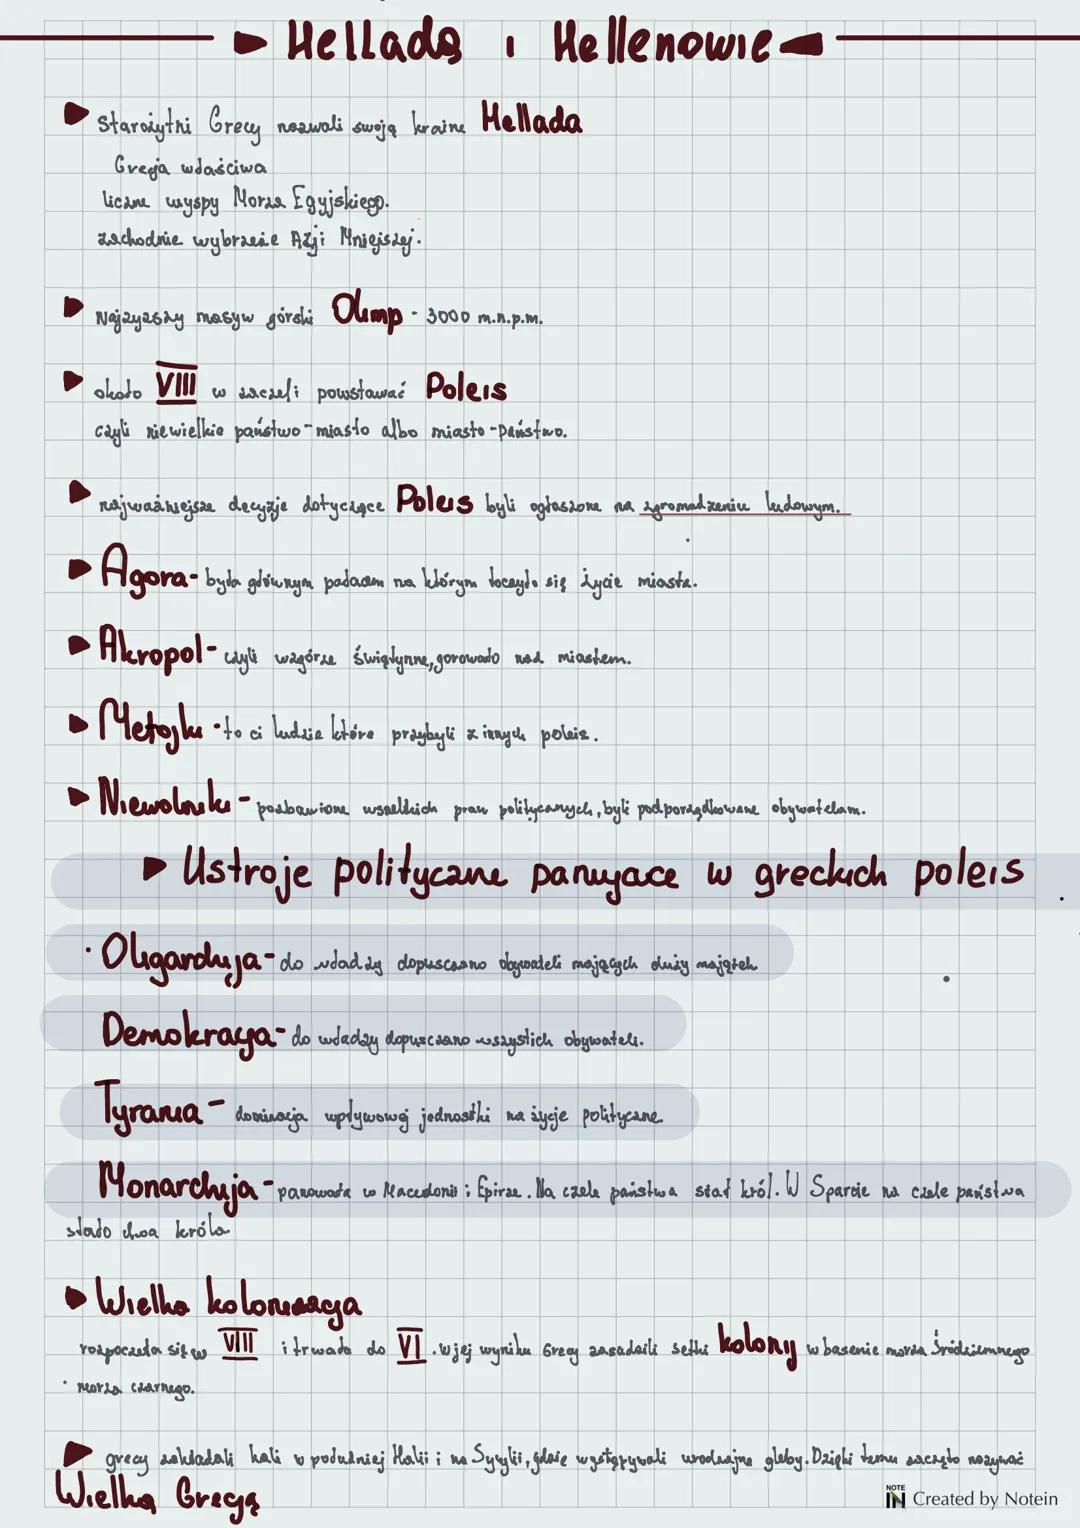 Hellada i Hellenowie
Starożytni Grecy nazwali swoją kraine Hellada
Grecja właściwa
liczne wyspy Morza Egyjskiego.
zachodnie wybrzeże Azji Mniejszej.
Najzyższy masyw górski Olimp - 3000 m.n.p.m.
około VIII w zaczeli powstawać Poleis
czyli niewielkie państwo-miasto albo miasto-państwo.
najważniejsze decyzje dotyczące Poleis byli ogłaszone na zgromadzeniu ludowym.
Agora- była głównym padacem na którym toczyło się życie miasta.
Akropol- czyli wzgórze świątynne, gorowało nad miastem.
Metojki - to ci ludzie które przybyli z innych poleis.
Niewolniki - pozbawione wszelkich praw politycznych, byli podporządkowane obywatelam.
Ustroje polityczne panujące w greckich poleis
Oligarchija- do władzy dopuszczano obywateli mających duży majątek
Demokracja- do władzy dopuszczano wszystich obywateli.
Tyrania - dominacja wpływowej jednostki na życje polityczne
Monarchija- panowała w Macedonii i Epirze. Na czele państwa stał król. W Sparcie na czele państwa
stało dwa króla
Wielka kolonizacja
rozpoczeła się w VIII i trwała do VI. w jej wyniku Grecy zasadzili setki kolony w basenie morza Śródziemnego
morza czarnego.
grecy zakładali kali w południej Italii i na Sycylii, gdzie występywali urodzajne gleby. Dzięki temu zaczęto nazywać
Wielką Grecją
NOTE IN Created by Notein